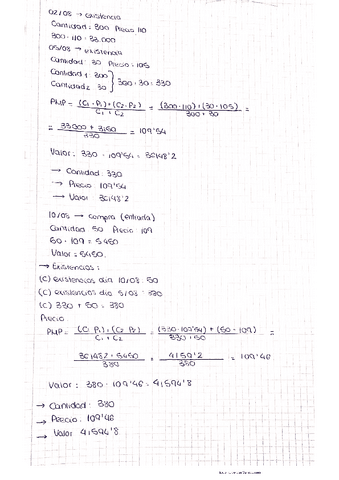 02/03 → existencia
Cantidad: 300 Precio 110
300 · 110 = 33.000
05/03 → existencia
Cantidad: 30 Precio: 105
Cantidad 1: 300
Cantidad 2: 30 } 300 + 30 = 330
PMP = (C1 · P1) + (C2 · P2) / C1 + C2 = (300 · 110) + (30 · 105) / 300 + 30 =
= 33000 + 3150 / 330 = 109'54
Valor: 330 · 109'54 = 36148'2
→ Cantidad: 330
→ Precio 109'54
→ Valor 36148'2
10/03 → compra (entrada)
Cantidad 50 Precio 109
50 · 109 = 5450
Valor = 5450.
→ Existencias:
(C) existencias día 10/03: 50
(C) existencias día 5/03: 330
(C) 330 + 50 = 380
Precio
PMP = (C1 · P1) + (C2 · P2) / C1 + C2 = (330 · 109'54) + (50 · 109) / 330 + 50
36148'2 + 5450 / 380 = 41592'2 / 380 = 109'46
Valor: 380 · 109'46 = 41594'8
→ Cantidad: 380
→ Precio: 109'46
→ Valor 41594'8